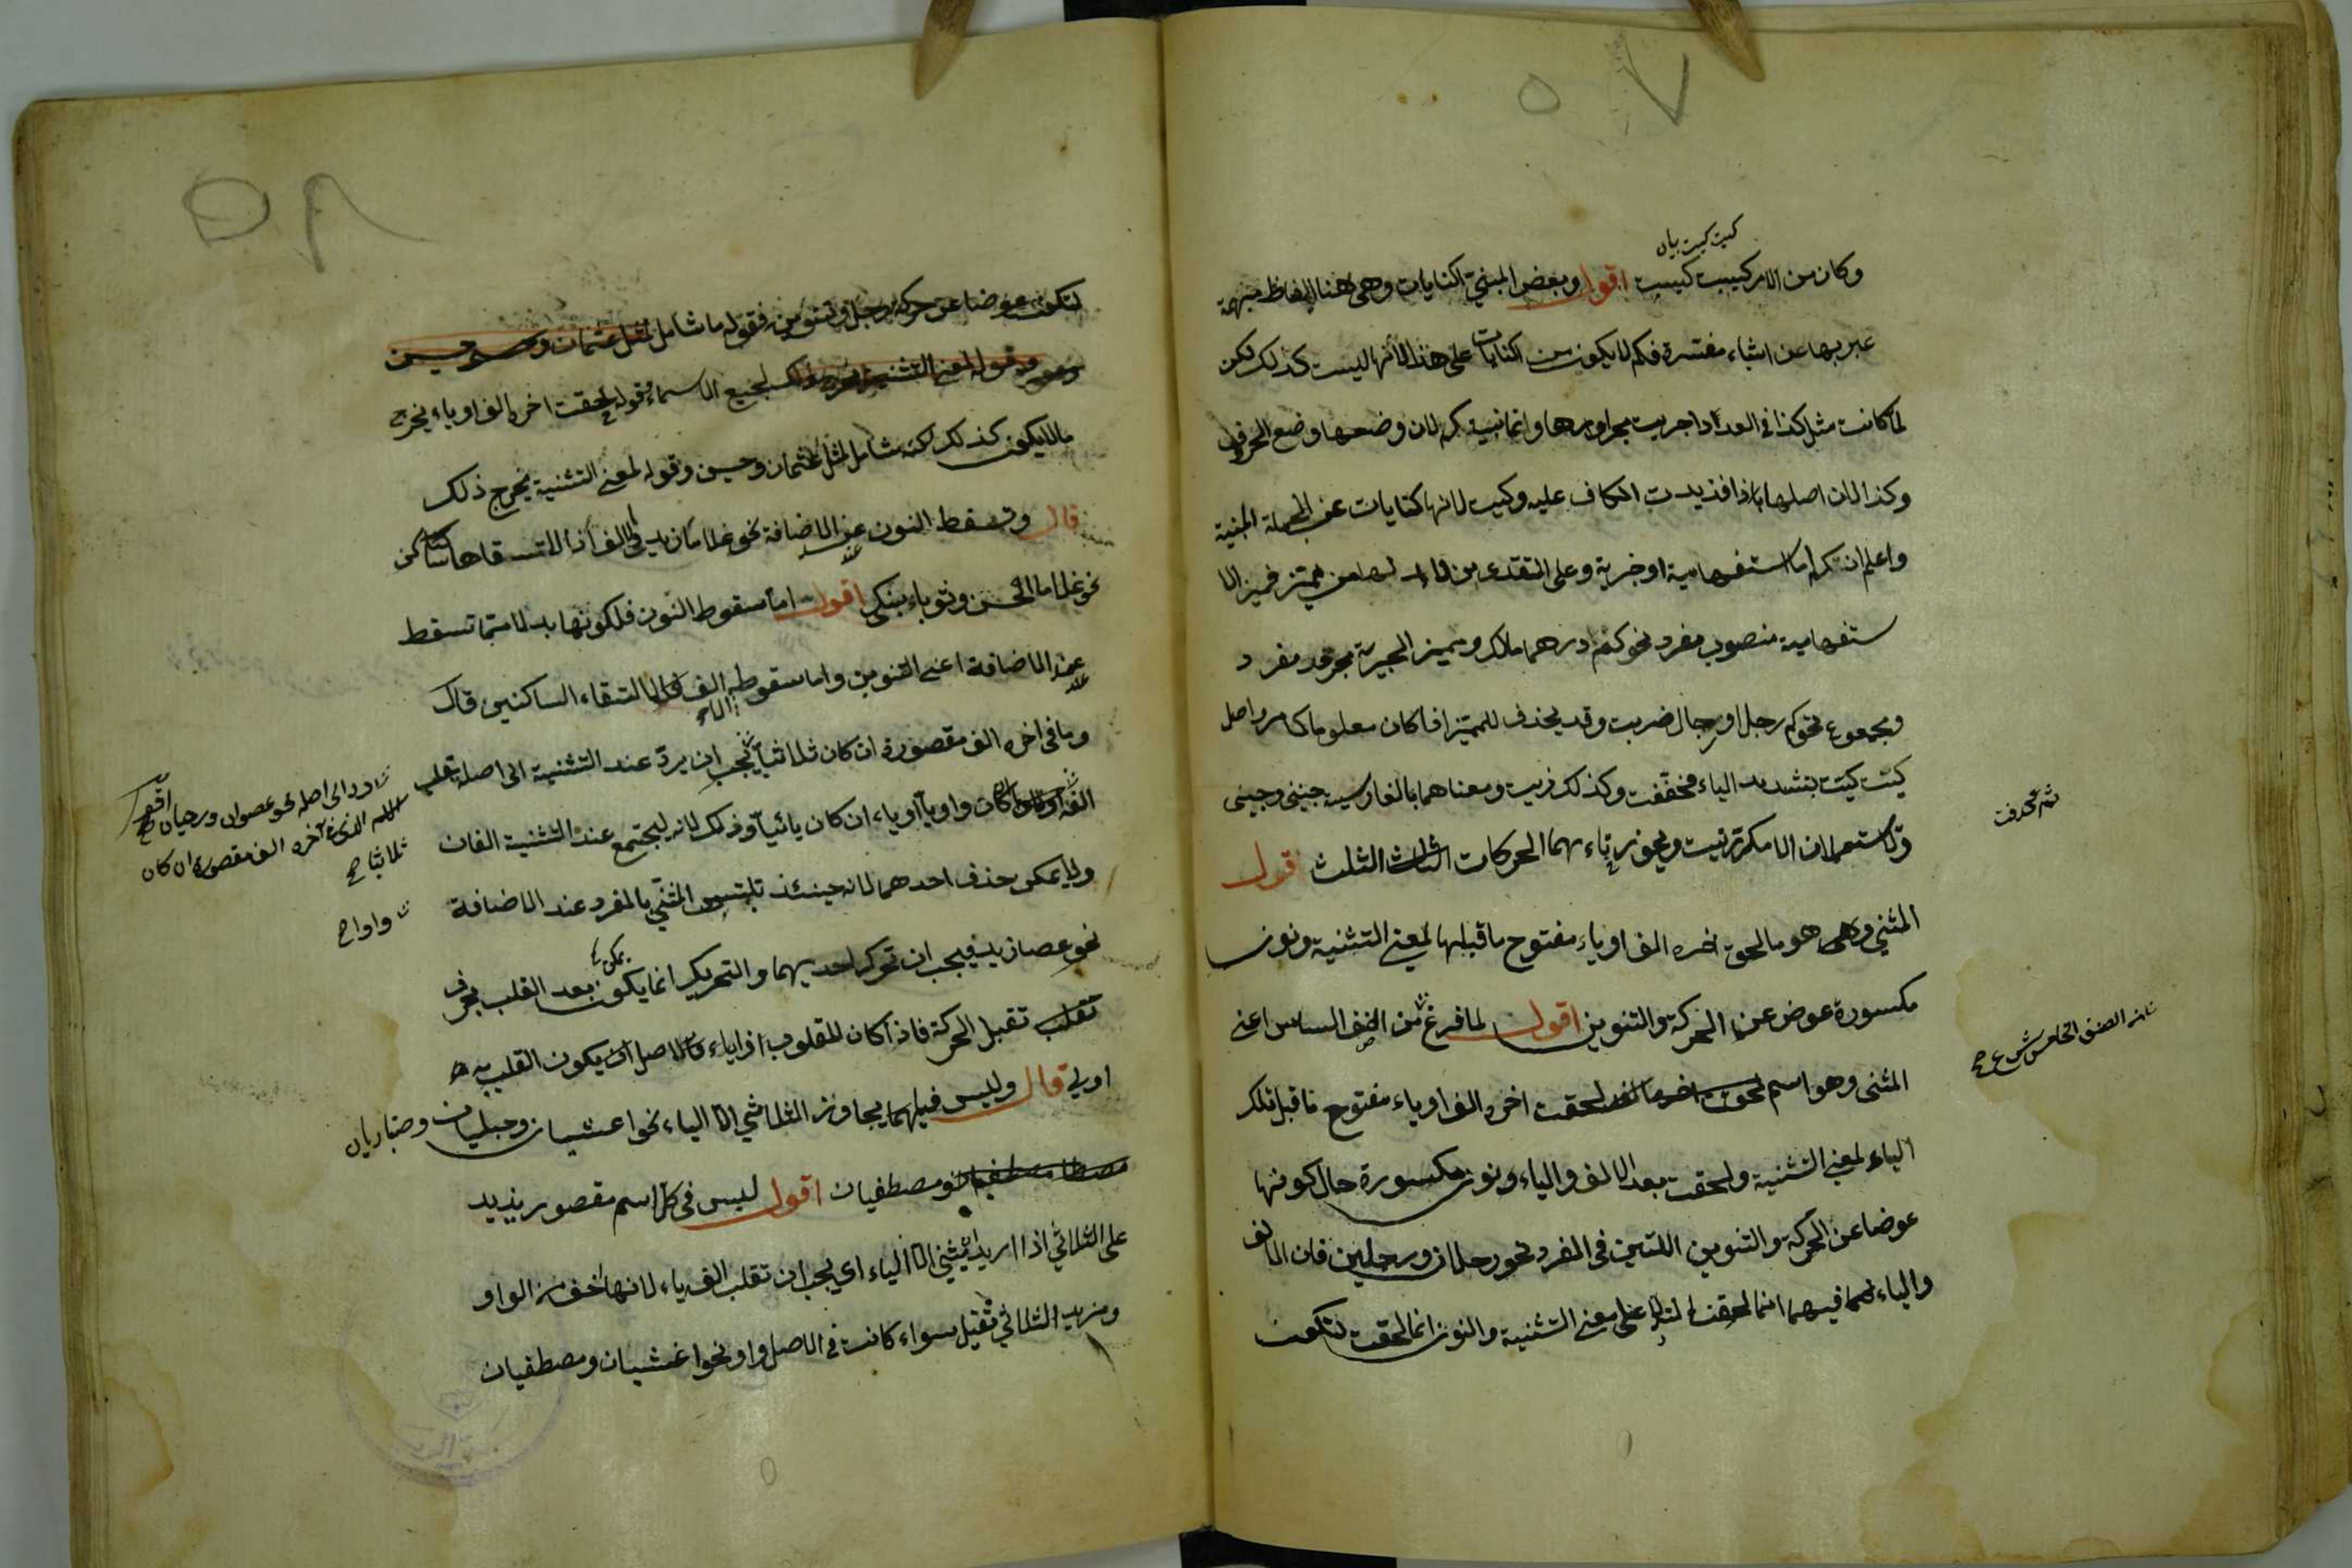 ٥٧
كيت كيت بيان
وكان من الامر كيت كيت اقول وبعض المبني الكنايات وهى هنا الفاظ مبهمة
عبر بها عن اشياء مفسرة فكم لا يكون من الكنايات على هذا لانها ليست كذلك لكن
لما كانت مثل كذا في العدد اجريت مجراه وانما بنيت كم لان وضعها وضع الحروف
وكذا لان اصلها ذا فزيدت الكاف عليه وكيت لانها كنايات عن الجملة المبنية
واعلم ان كم اما استفهامية او خبرية وعلى التقديرين لا بد لها من مميز فمميز الا
ستفهامية منصوب مفرد نحو كم درهما مالك ومميز الخبرية مجرور مفرد
ومجموع نحو كم رجل او رجال ضربت وقد يحذف المميز اذا كان معلوما كما مر واصل
كيت كيت بتشديد الياء فخففت وكذلك ذيت ومعناهما بالفارسية چنين وچنين
ولا تستعملان الا مكررتين ويجوز في تاءيهما الحركات الثلث قول
المثنى وهو ما لحق اخره الف او ياء مفتوح ما قبلها لمعنى التثنية ونون
مكسورة عوض عن الحركة والتنوين اقول لما فرغ من الصنف السادس اعني
المثنى وهو اسم لحقت اخره الف او ياء مفتوح ما قبل تلك
الياء لمعنى التثنية ولحقت بعد الالف والياء ونون مكسورة حال كونها
عوضا عن الحركة والتنوين اللتين في المفرد نحو رجلان ورجلين فان الالف
والياء فيهما انما لحقت لتدل على معنى التثنية والنون انما لحقت لتكون
ثم حذفت
الصنف الخامس شرع
٥٨
لتكون عوضا عن حركة رجل وتنوينه فقوله ما شامل لمثل عثمان وحسين
لجميع الاسماء وقوله لحقت اخره الف او ياء يخرج
ما لا يكون كذلك لكنه شامل لمثل عثمان وحسين وقوله لمعنى التثنية يخرج ذلك
قال وتسقط النون عند الاضافة نحو غلاما زيد والالف اذا لاقتها ساكن
نحو غلاما الحسن وثوبا ابنك اقول اما سقوط النون فلكونها بدلا مما تسقط
عند الاضافة اعني التنوين واما سقوط الالف فلالتقاء الساكنين قال
وما في اخره الف مقصورة ان كان ثلاثيا يجب ان يرد عند التثنية الى اصله تقلب
الفه كان واويا او ياء ان كان يائيا وذلك لانه ليجتمع عند التثنية الفان
ولا يمكن حذف احدهما لانه حينئذ تلتبس المثنى بالمفرد عند الاضافة
نحو عصا زيد فيجب ان تحرك احديهما والتحريك انما يكون بعد القلب بحرف
يمكن
تقبل الحركة فاذا كان المقلوب واوا او ياء فالاصل ان يكون القلب به
اولى قال وليس فيما يجاوز الثلاثي الا الياء نحو اعشيان وحبليان وحباريان
ومصطفيان اقول ليس في كل اسم مقصور يزيد
على الثلاثي اذا اريد ان يثنى الا الياء اي يجب ان تقلب الفه ياء لانها اخف من الواو
ومزيد الثلاثي ثقيل سواء كانت في الاصل واو نحو اعشيان ومصطفيان
رد الى اصله نحو عصوان ورحيان اقول
الاسم الذي في آخره الف مقصورة ان كان
ثلاثيا
واوا